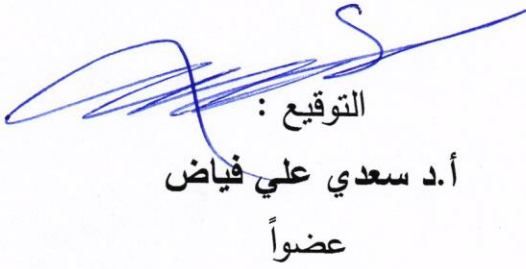 التوقيع :
أ.د سعدي علي فياض
عضواً